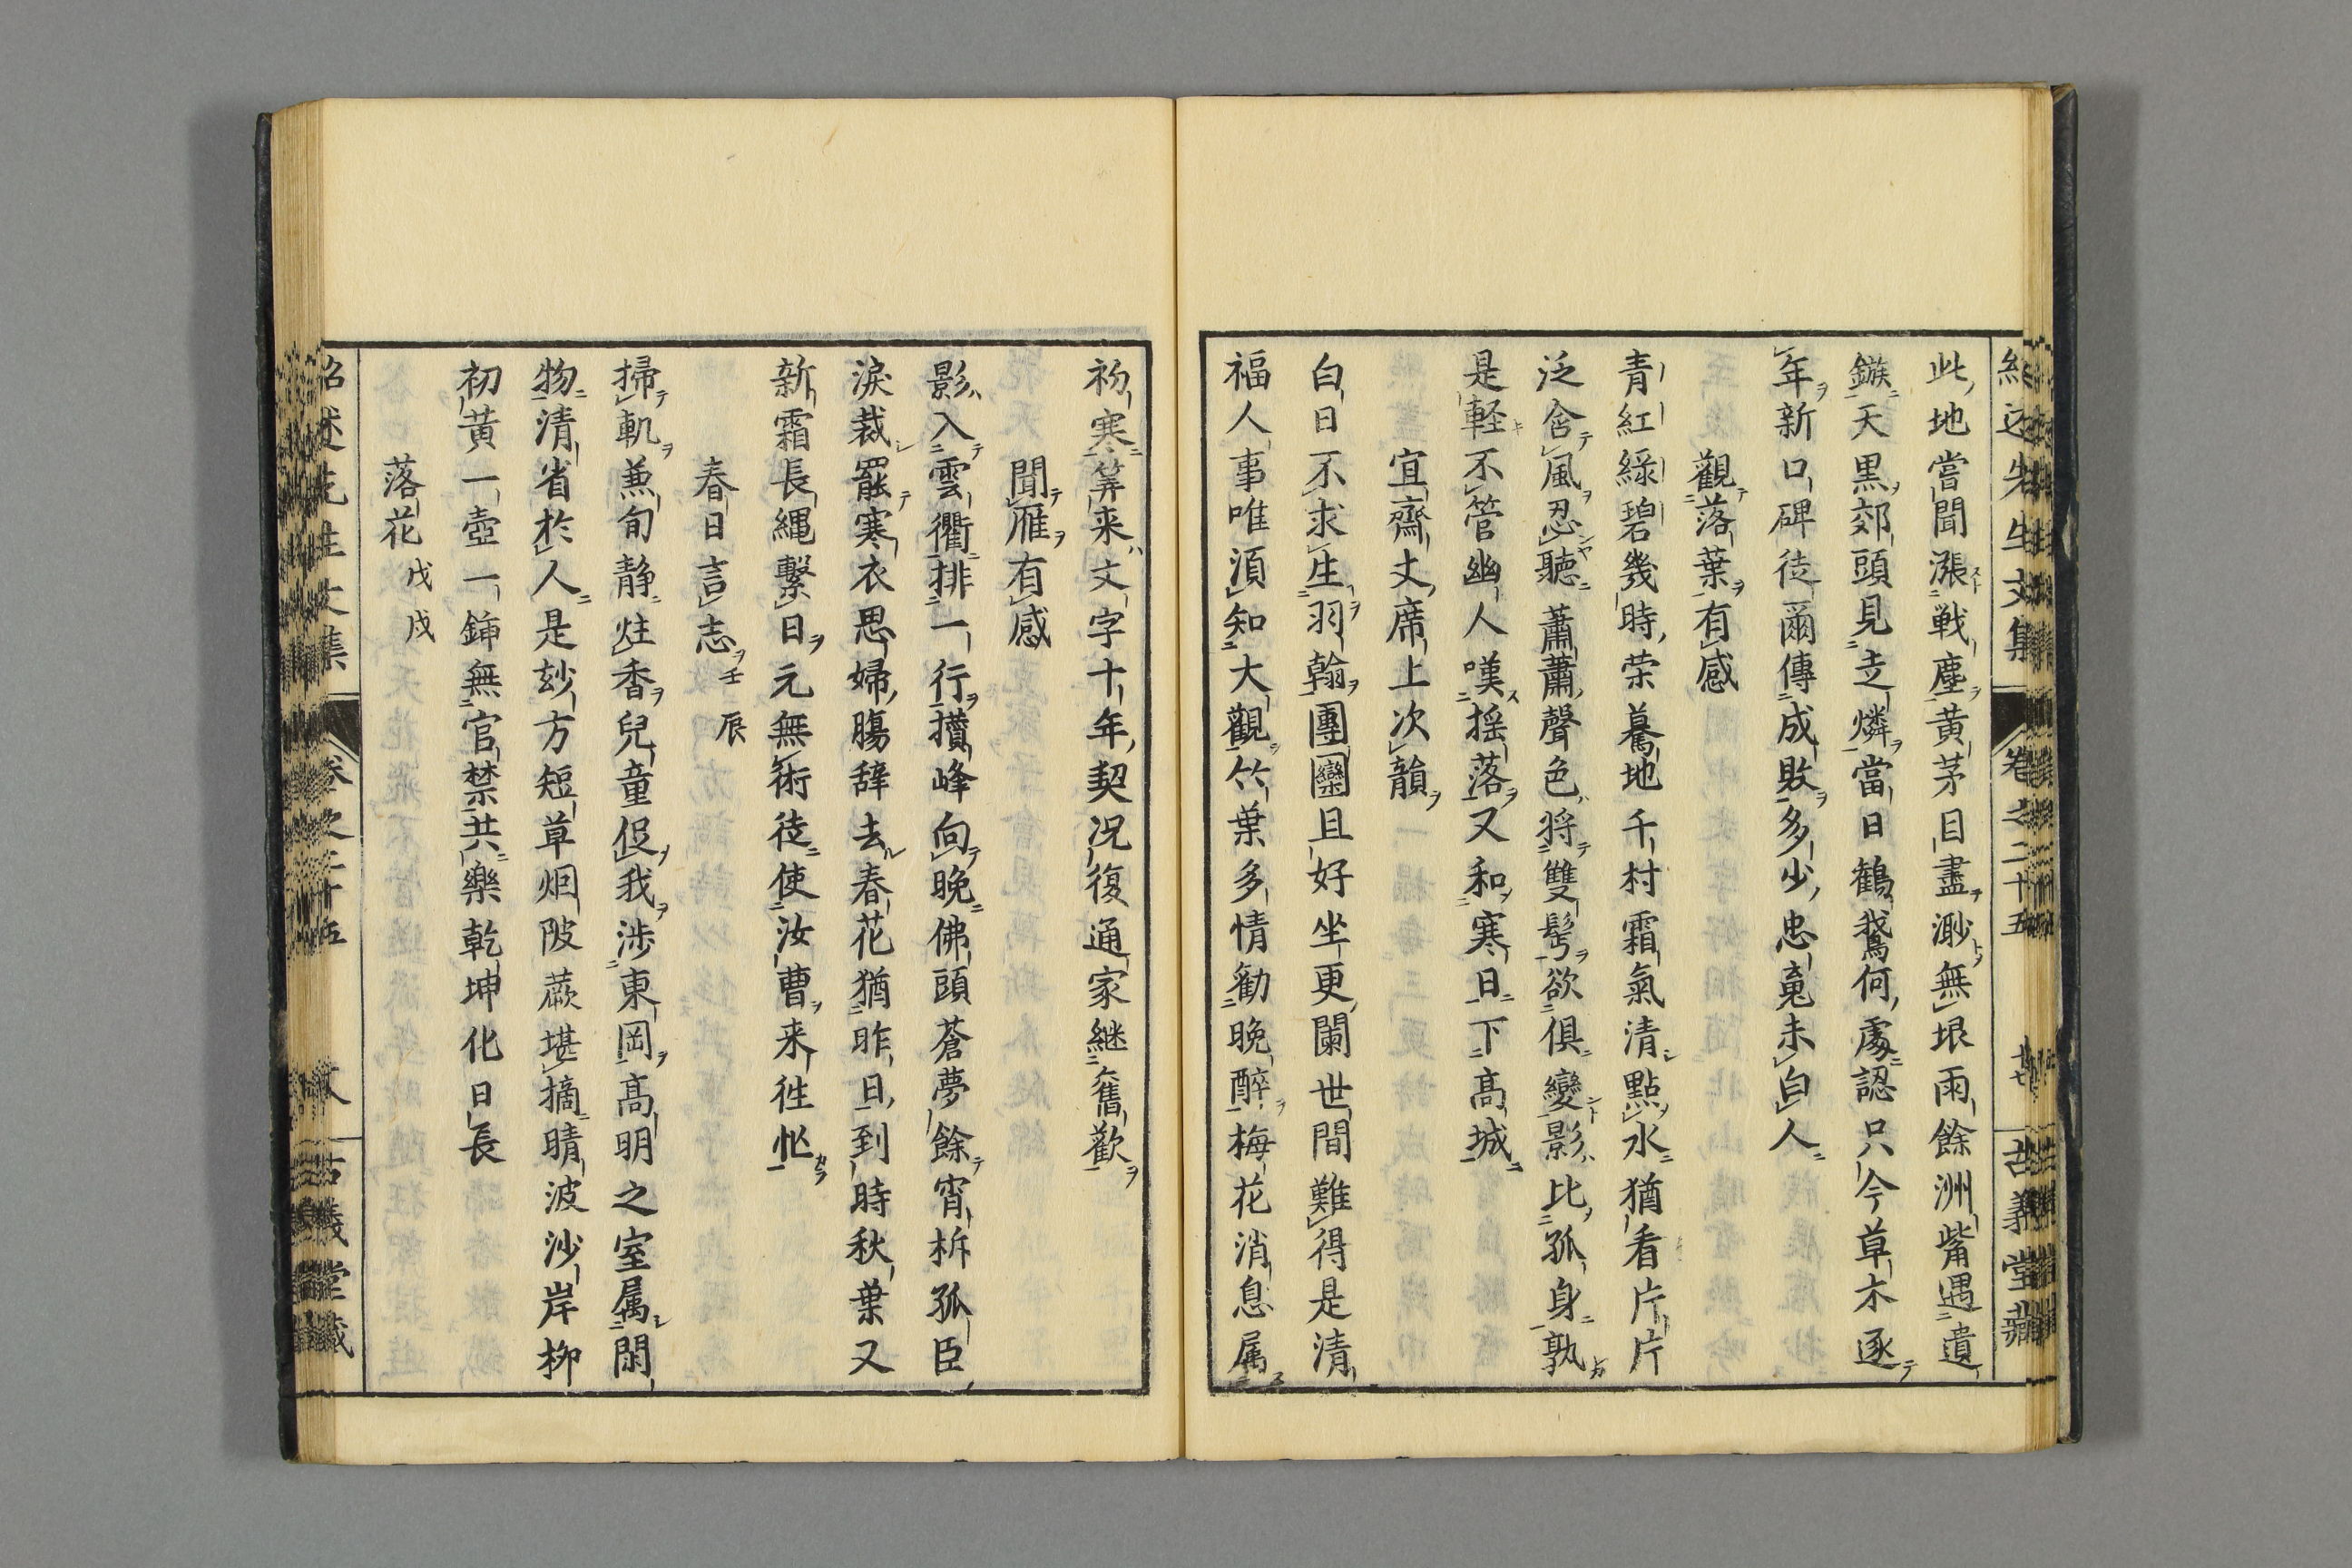 紹述先生文集 卷之二十五 古義堂藏
此地嘗聞漲戦塵黄茅目盡渺無垠雨餘洲觜遇遺
鏃天黒郊頭見走燐當日鶴鵞何處認只今草木逐
年新口碑徒爾傳成敗多少忠䰟未白人
觀落葉有感
青紅緑碧幾時荣驀地千村霜氣清點水猶看片片
泛舎風忍聽蕭蕭聲色将雙髩欲俱變影比孤身孰
是軽不管幽人嘆揺落又和寒日下高城
宜齋丈席上次韻
白日不求生羽翰團圞且好坐更闌世間難得是清
福人事唯湏知大觀竹葉多情勧晩醉梅花消息属
初寒筭来文字十年契况復通家継舊歡
聞雁有感
影入雲衢排一行攅峰向晩佛頭蒼夢餘宵柝孤臣
淚裁罷寒衣思婦膓辞去春花猶昨日到時秋葉又
新霜長縄繫日元無術徒使汝曹来徃忙
春日言志 壬辰
掃軌兼旬静炷香兒童促我渉東岡高明之室属閑
物清省於人是玅方短草烟陂蕨堪摘晴波沙岸柳
初黄一壺一鍤無官禁共樂乾坤化日長
落花 戊戌
紹述先生文集 卷之二十五 古義堂藏